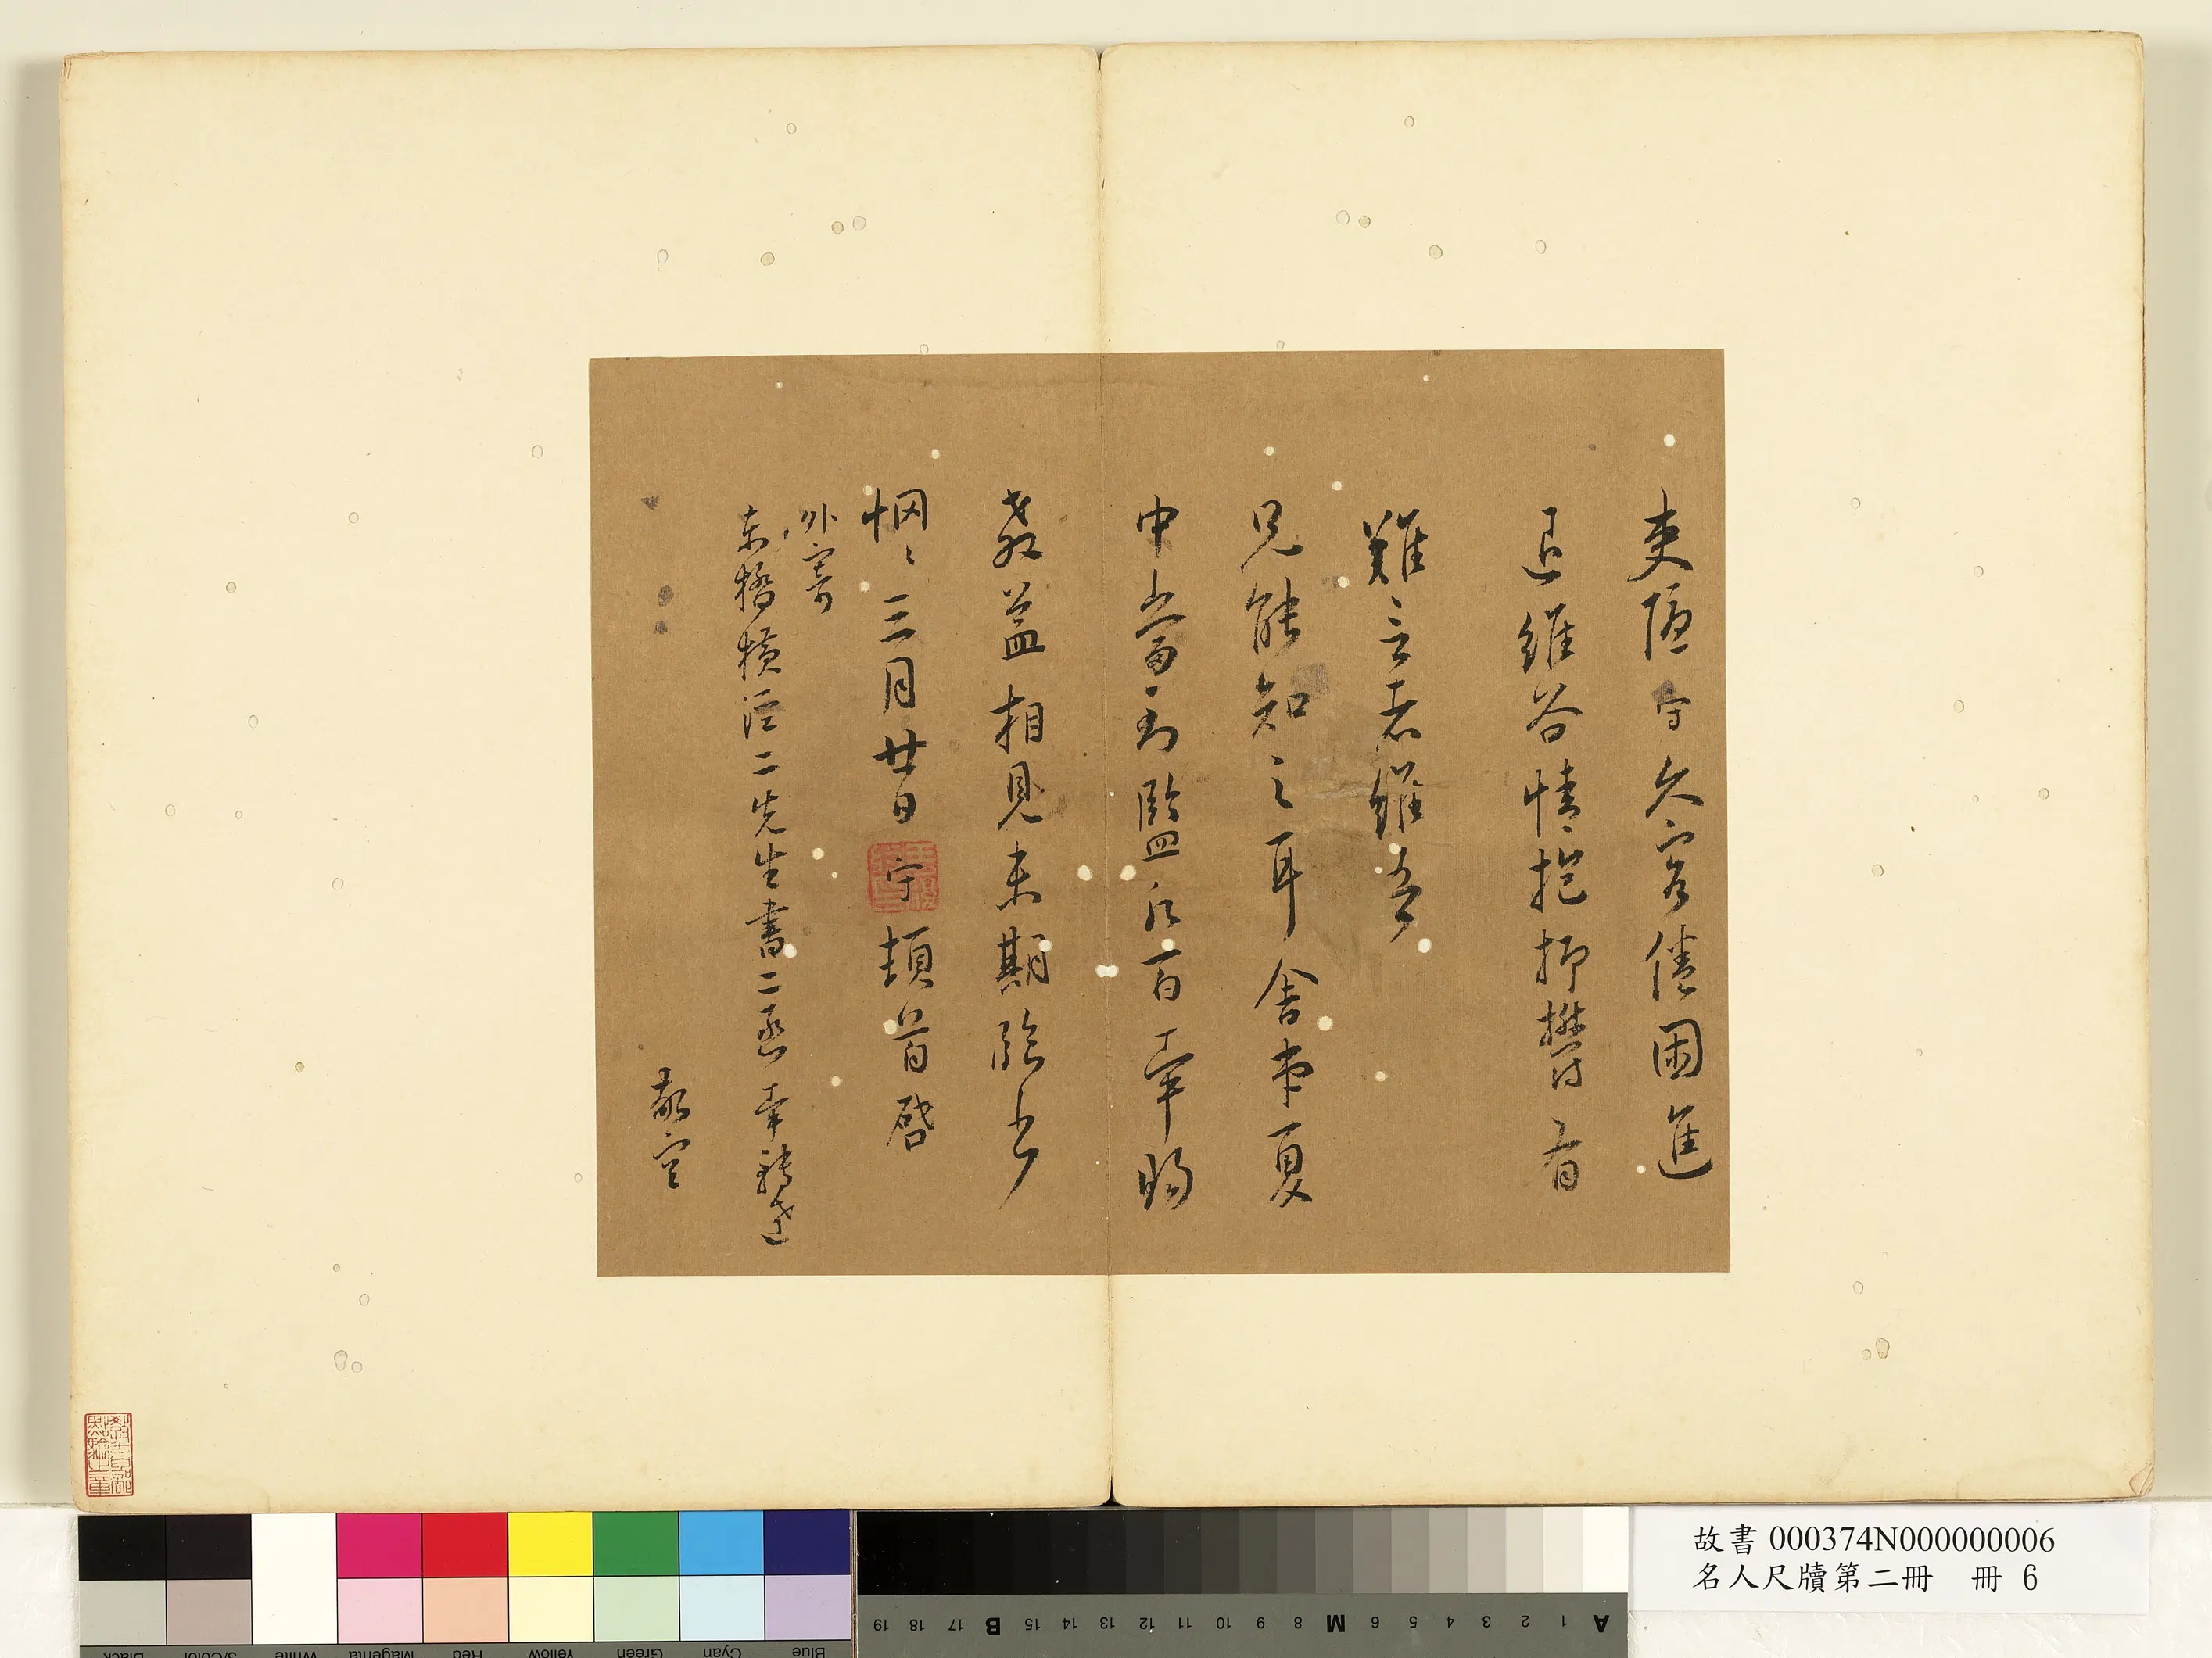 吏隱守久客倦困進
退維谷情抱抑鬱有
難言者維吾
兄能知之耳舍弟夏
中當到監之百幸賜
教益相見未期臨書
惘〻三月廿日守頓首啓
外寄
東橋橫涇二先生書二函幸轉達
敬空
故書 000374N000000006
名人尺牘第二冊 冊 6
A 1 2 3 4 5 6 M 8 9 10 11 12 13 14 15 B 17 18 19
Blue Cyan Green Yellow Red Magenta White 3/Color Black